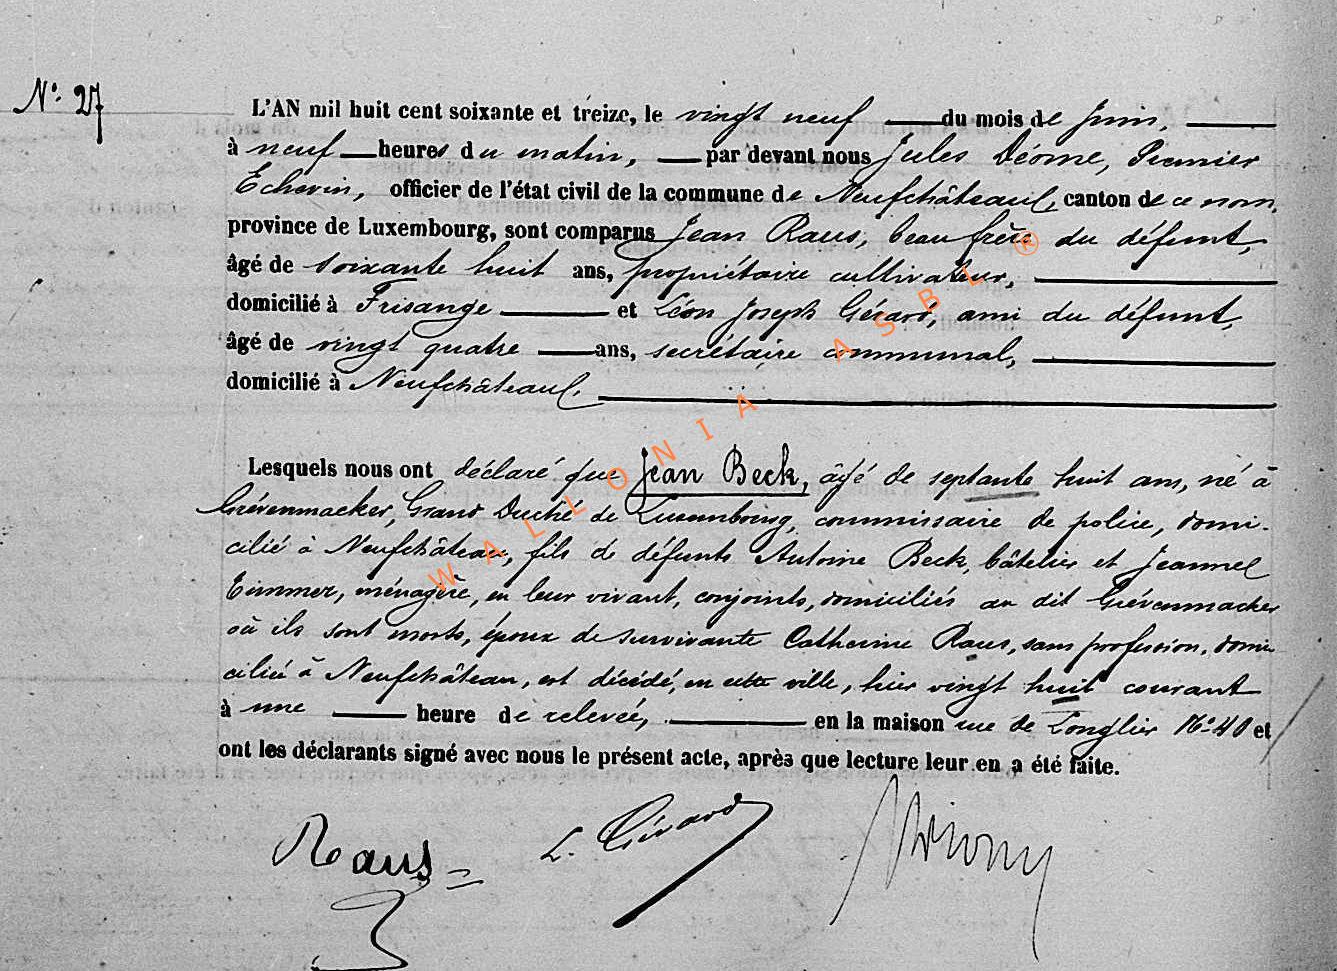 N° 27
L'AN mil huit cent soixante et treize, le vingt neuf du mois de Juin,
à neuf heures du matin, par devant nous Jules Déome, Premier
Echevin, officier de l'état civil de la commune de Neufchâteau, canton de ce nom,
province de Luxembourg, sont comparus Jean Raus, beau frère du défunt,
âgé de soixante huit ans, propriétaire cultivateur,
domicilié à Frisange et Léon Joseph Gérard, ami du défunt,
âgé de vingt quatre ans, secrétaire communal,
domicilié à Neufchâteau,
Lesquels nous ont déclaré que Jean Beck, âgé de septante huit ans, né à
Grévenmacker, Grand Duché de Luxembourg, commissaire de police, domi-
cilié à Neufchâteau, fils de défunts Antoine Beck, bâtelier et Jeannel
Eimmer, ménagère, en leur vivant, conjoints, domiciliés au dit Grévenmacker
où ils sont morts, époux de survivante Catherine Raus, sans profession, domi
ciliée à Neufchâteau, est décédé, en cette ville, hier vingt huit courant
à une heure de relevée, en la maison rue de Longlier N° 40 et
ont les déclarants signé avec nous le présent acte, après que lecture leur en a été faite.
Raus L. Gérard
WALLONIA ASBL ®